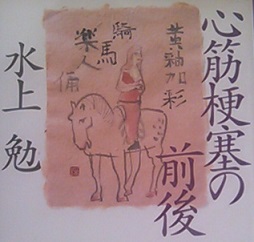 心筋梗塞の
前後
水上 勉
黄釉加彩
騎馬
楽人
俑